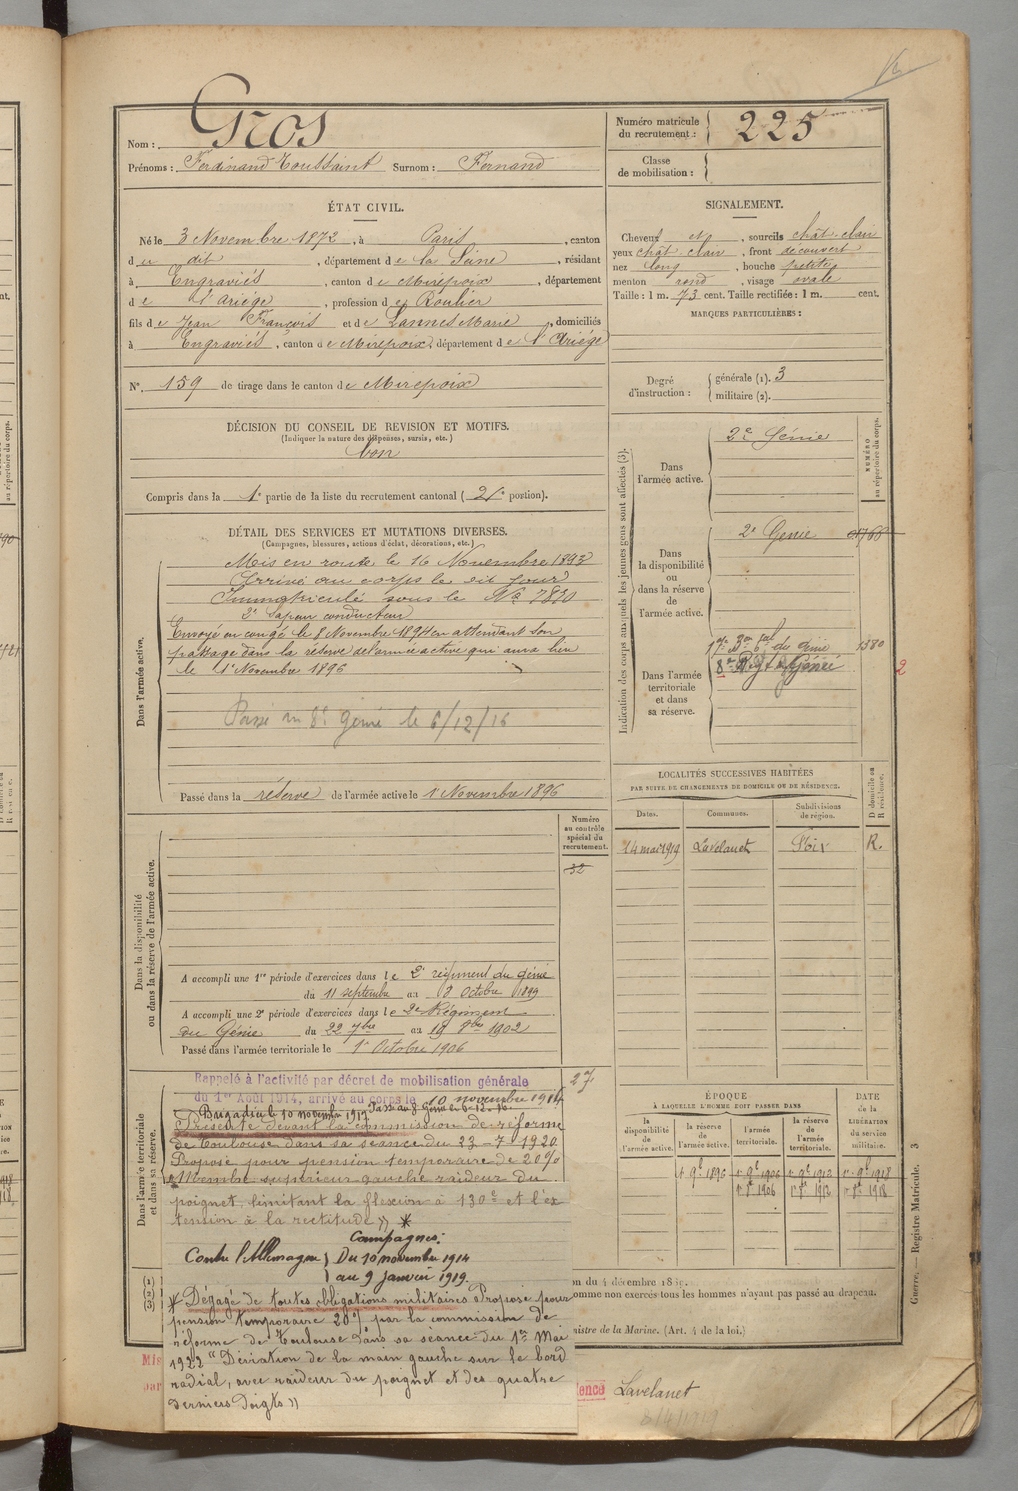 Nom : Gros
Prénoms : Ferdinand Toussaint Surnom : Fernand
Numéro matricule du recrutement : 225
Classe de mobilisation :
ÉTAT CIVIL.
Né le 3 Novembre 1872, à Paris, canton
du dit, département de la Seine, résidant
à Engraviès, canton de Mirepoix, département
de l'Ariège, profession de Roulier
fils de Jean François et de Lannes Marie, domiciliés
à Engraviès, canton de Mirepoix, département de l'Ariége
N°. 159 de tirage dans le canton de Mirepoix
SIGNALEMENT.
Cheveux et, sourcils chât. clair
yeux chât. clair, front découvert
nez long, bouche petite
menton rond, visage ovale
Taille : 1 m. 73 cent. Taille rectifiée : 1 m. cent.
MARQUES PARTICULIÈRES :
Degré d'instruction : générale (1). 3
militaire (2).
DÉCISION DU CONSEIL DE REVISION ET MOTIFS.
(Indiquer la nature des dispenses, sursis, etc.)
bon
Compris dans la 1e partie de la liste du recrutement cantonal (2e portion).
DÉTAIL DES SERVICES ET MUTATIONS DIVERSES.
(Campagnes, blessures, actions d'éclat, décorations, etc.)
Dans l'armée active.
Mis en route le 16 Novembre 1893
Arrivé au corps le dit jour
Immatriculé sous le No 7830
2e Sapeur conducteur
Envoyé en congé le 8 Novembre 1894 en attendant son
passage dans la réserve de l'armée active qui aura lieu
le 1er Novembre 1896
Passé au 8e Génie le 6/12/16
Passé dans la réserve de l'armée active le 1er Novembre 1896
Indication des corps auxquels les jeunes gens sont affectés (3).
NUMÉRO au répertoire du corps.
Dans l'armée active. 2e Génie
Dans la disponibilité ou dans la réserve de l'armée active. 2e Génie
Dans l'armée territoriale et dans sa réserve.
du Génie 1380
8e Rgt Génie 2
LOCALITÉS SUCCESSIVES HABITÉES
PAR SUITE DE CHANGEMENTS DE DOMICILE OU DE RÉSIDENCE.
D domicile ou R résidence.
Dates. Communes. Subdivisions de région.
14 mai 1919 Lavelanet Foix R.
Numéro au contrôle spécial du recrutement.
32
Dans la disponibilité
ou dans la réserve de l'armée active.
A accompli une 1re période d'exercices dans le 2e régiment du génie
du 11 septembre au 8 octobre 1899
A accompli une 2e période d'exercices dans le 2e Régiment
du Génie du 22 7bre au 19 8bre 1902
Passé dans l'armée territoriale le 1er Octobre 1906
Dans l'armée territoriale
et dans sa réserve.
27
Rappelé à l'activité par décret de mobilisation générale
du 1er Août 1914, arrivé au corps le 10 novembre 1914
Brigadier le 10 novembre 1917 Passé au 8e Génie le 6-12-16
Présenté devant la commission de réforme
de Toulouse dans sa séance du 23-7-1920
Proposé pour pension temporaire de 20%
Membre supérieur gauche raideur du
poignet limitant la flexion à 130° et l'ex
tension à la rectitude » *
Campagnes :
Contre l'Allemagne } Du 10 novembre 1914
} au 9 janvier 1919.
* Dégagé de toutes obligations militaires Proposé pour
pension temporaire 20% par la commission de
réforme de Toulouse dans sa séance du 1er Mai
1922 "Déviation de la main gauche sur le bord
radial, avec raideur du poignet et des quatre
derniers doigts »
ÉPOQUE
À LAQUELLE L'HOMME DOIT PASSER DANS
la disponibilité de l'armée active. la réserve de l'armée active. l'armée territoriale. la réserve de l'armée territoriale.
DATE de la LIBÉRATION du service militaire.
1er 9e 1896 1er 9e 1906 1er 9e 1912 1er 9e 1918
1er 8e 1906 1er 8e 1912 1er 8e 1918
on du 4 décembre 18
omme non exercés tous les hommes n'ayant pas passé au drapeau.
nistre de la Marine. (Art. 4 de la loi.)
Guerre. — Registre Matricule. 3
Mis
par
dence Lavelanet
8/4/1919